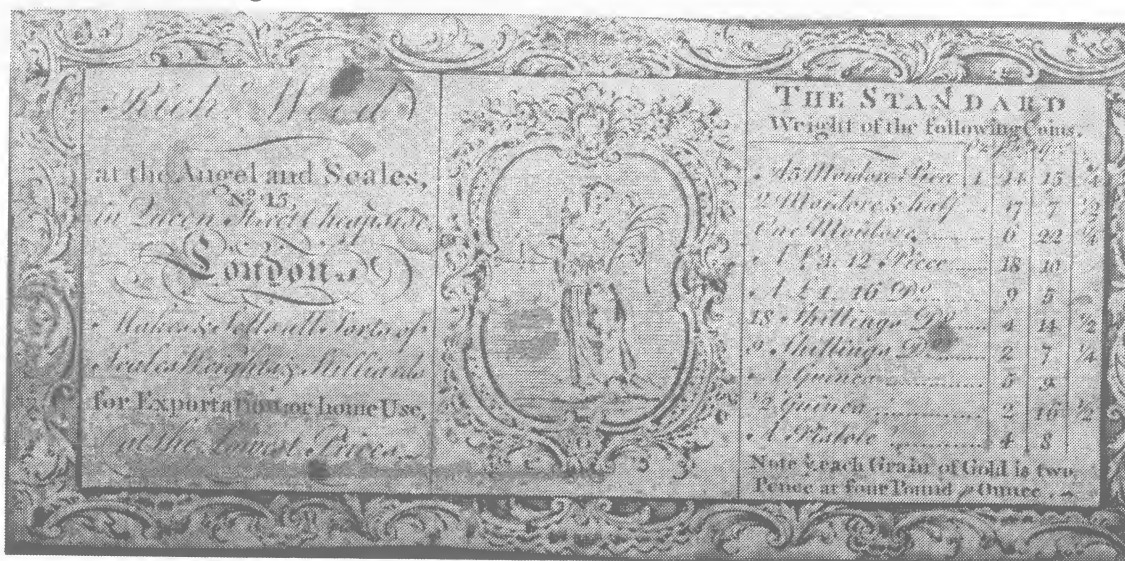 Richd. Wood
at the Angel and Scales,
No. 15,
in Queen Street Cheapside,
London.
Makes & Sells all Sorts of
Scales Weights & Stilliards
for Exportation or home Use,
at the Lowest Prices.
THE STANDARD
Weight of the following Coins.
A 5 Moidore Piece 1 14 15 ¼
2 Moidore & half 17 7 ½
One Moidore 6 22 ¼
A £3. 12 Piece 18 10
A £1. 16 Do. 9 5
18 Shillings Do. 4 14 ½
9 Shillings Do. 2 7 ¼
A Guinea 5 9
½ Guinea 2 16 ½
A Pistole 4 8
Note each Grain of Gold is two
Pence at four Pound Ounce